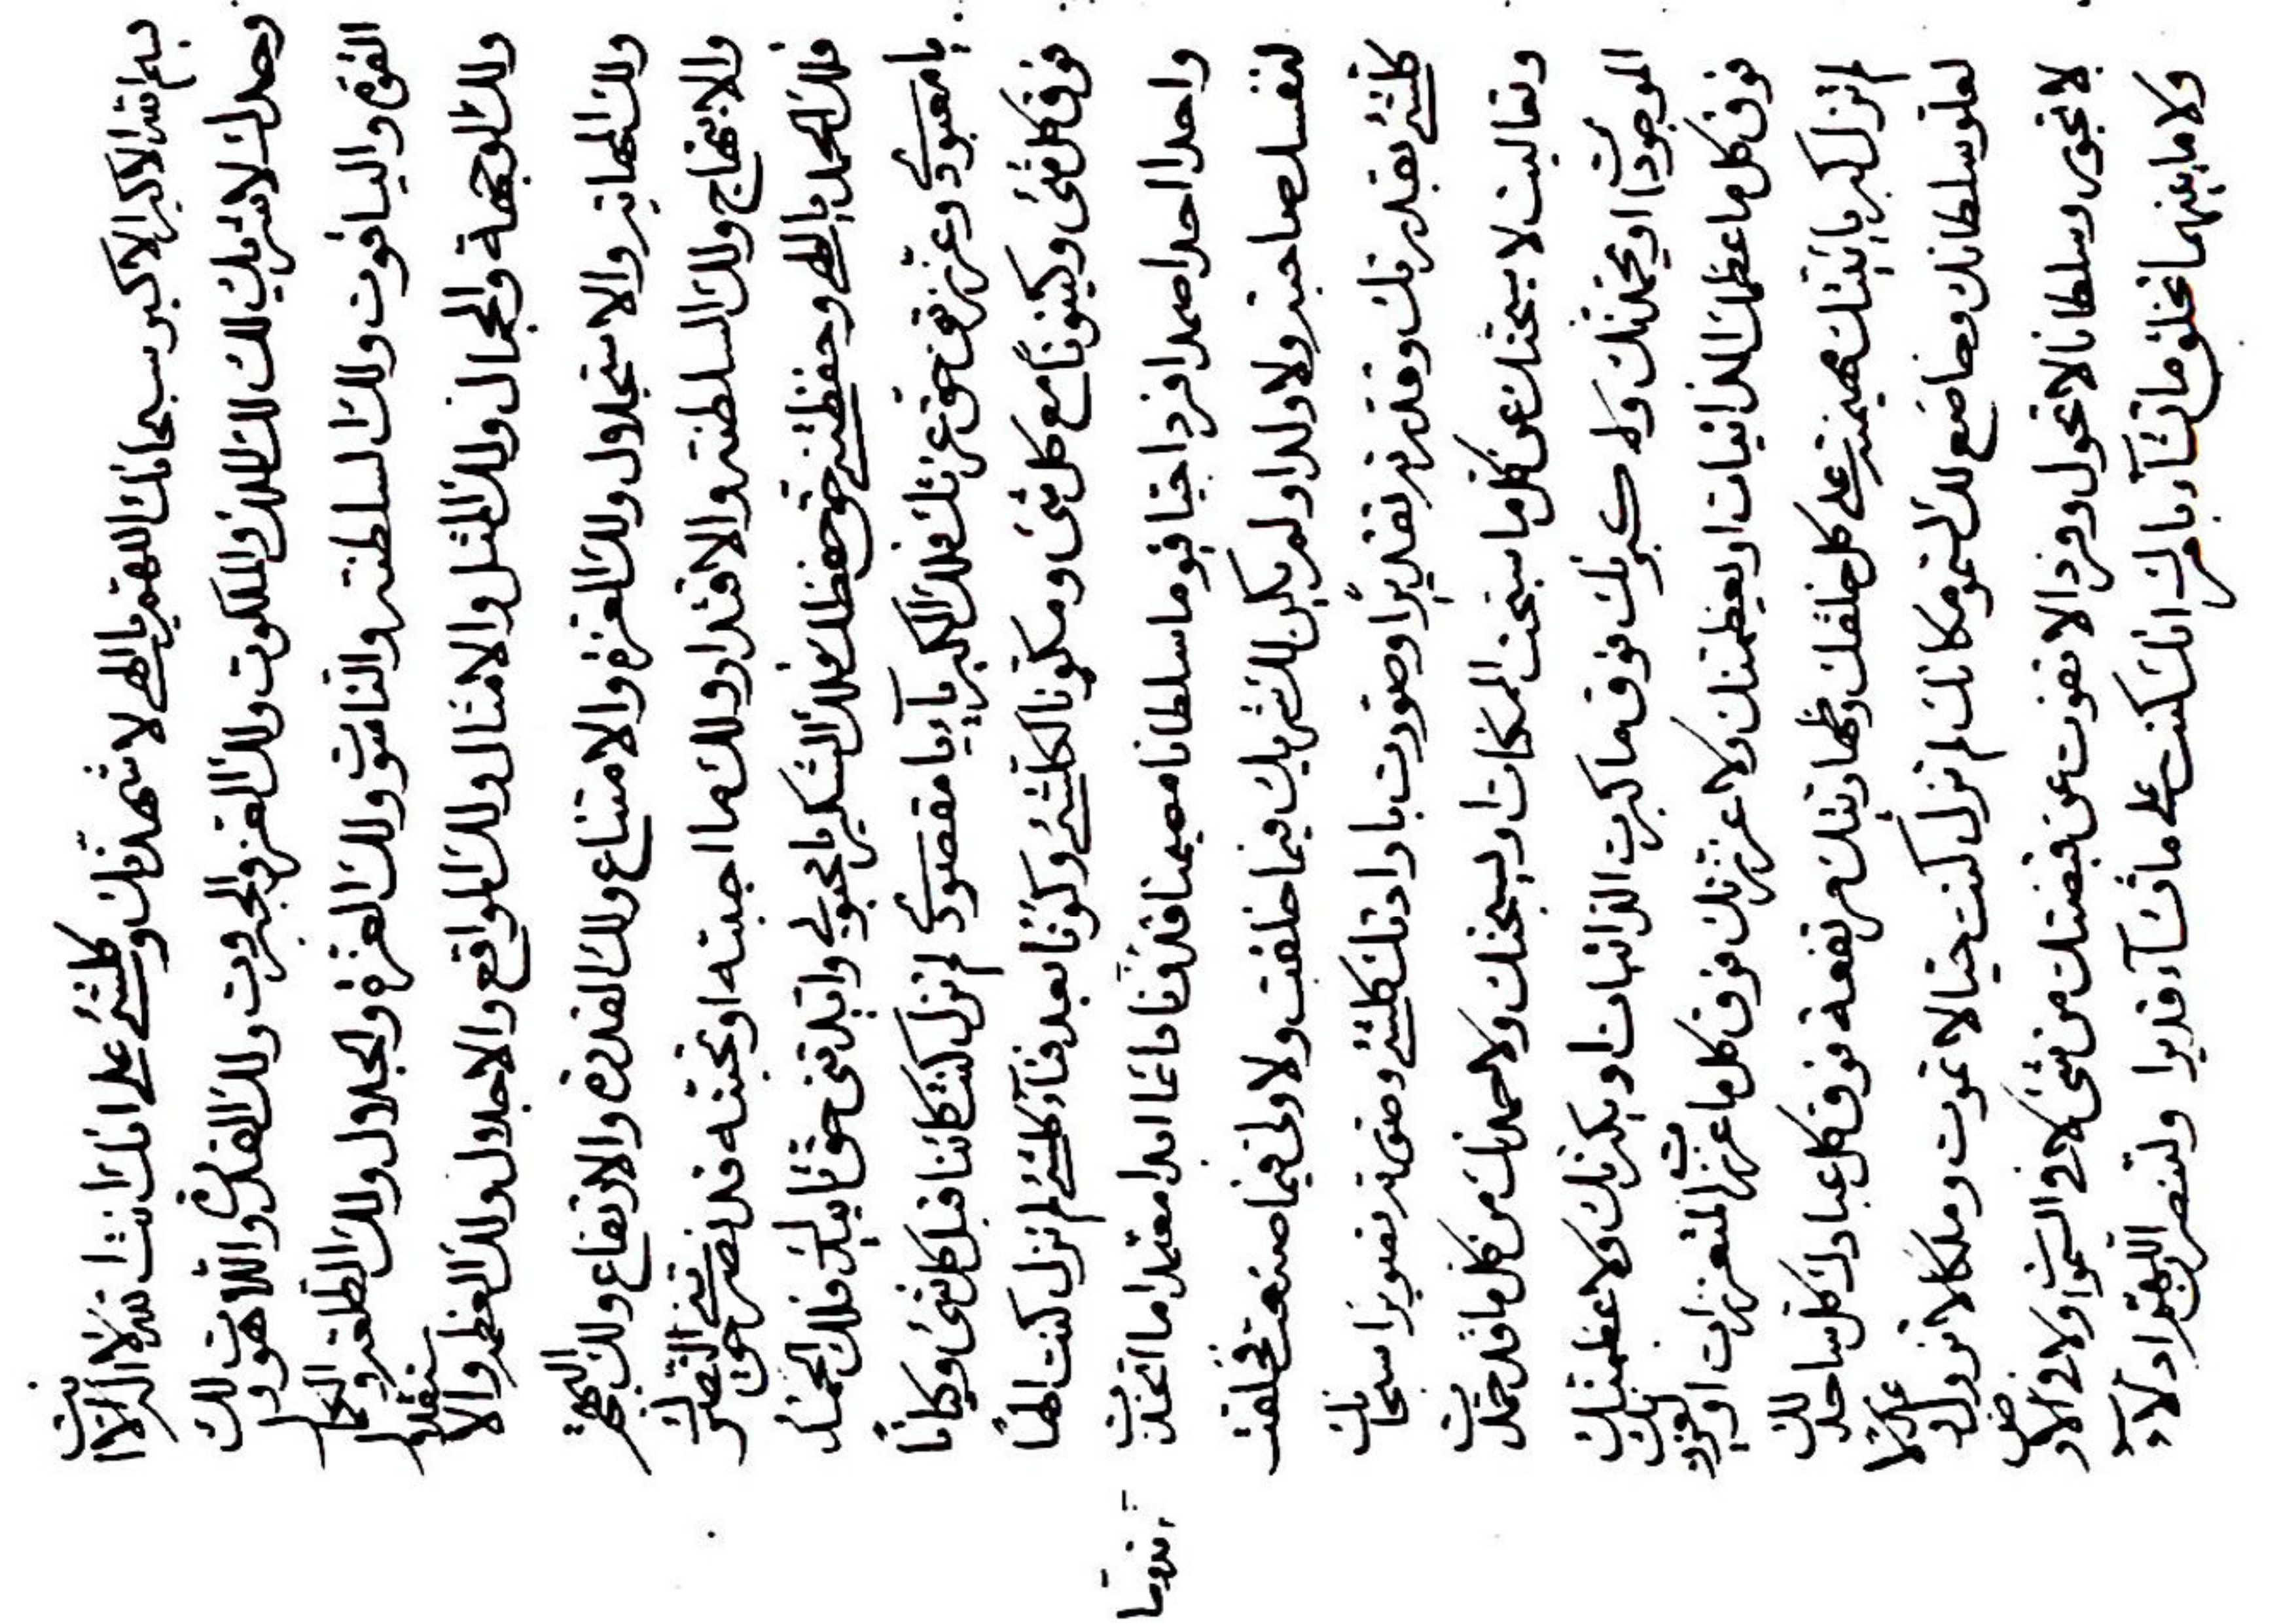 بسم الله الاكبر الاكبر سبحانك اللهم يا الهي لاشهدنك وكلشيء على انك انت الله لا اله الا انت
وحدك لا شريك لك لك الملك والملكوت ولك العز والجبروت ولك القدرة واللاهوت ولك
القوة والياقوت ولك السلطنة والناسوت ولك العزة والجلال ولك الطلعة والجمال
ولك الوجهة والجمال ولك المثل والامثال ولك المواقع والاجلال ولك العظمة والاستقلال
ولك المهابة والاستجلال ولك العزة والامتناع ولك القدرة والارتفاع ولك البهجة
والابتهاج ولك السلطنة والاقتدار ولك ما احببته او تحبنه قد نصرتني حق النصر
فلك الحمد يا الهي وحفظتني حق حفظك فلك الشكر يا محبوبي وايدتني حق تاييدك فلك الحمد
يا معبودي وعززتني حق عزتك فلك الكبرياء يا مقصودي لم تزل كنت كائنا قبل كل شيء وكيانا
فوق كل شيء وكينونا مع كل شيء ومكونا لكلشيء وكونا بعد فناء كلشيء لم تزل كنت الها
واحدا احدا صمدا فردا حيا قيوما سلطانا مهيمنا قدوسا دائما ابدا معتمدا ما اتخذت
لنفسك صاحبة ولا ولدا ولم يكن لك شريك فيما خلقت ولا ولي فيما صنعت خلقت
كلشيء بقدرتك وقدرته تقديرا وصورت بارادتك كلشيء وصورته تصويرا سبحانك
وتعاليت لاسبحنك عن كل ما سبحت الممكنات او يسبحنك ولاحمدنك من كل ما قد حمدت
الموجودات او يحمدنك ولاكبرنك فوق ما كبرت الذاتيات او يكبرنك ولاعظمنك
فوق كل ما عظمك الذاتيات او يعظمنك ولاعززنك فوق كل ما عزز المتعززات او يعززنك
لم تزل كبريائيتك مهيمنة على كل خلقك وظهاريتك مرتفعة فوق كل عبادك كل ساجد لك
لعلو سلطانك وخاضع لك لسمو مكانك لم تزل كنت حيا لا تموت وملكا لا تزول وعدلا
لا تجور وسلطانا لا تحول وفردا لا يفوت عن قبضتك من شيء لا في السموات ولا في الارض
ولا ما بينهما تخلق ما تشاء بامرك انك كنت على ما تشاء قديرا ولتنصرن اللهم